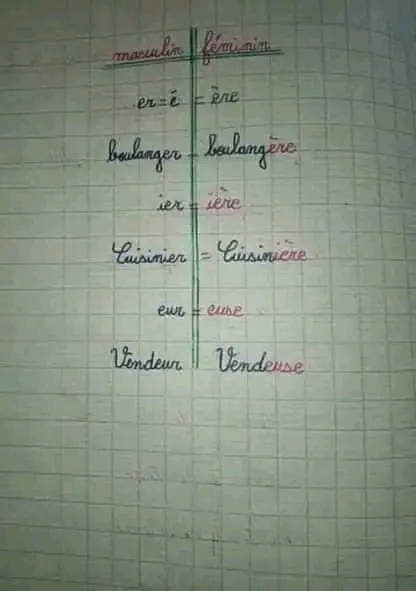 masculin féminin
er = é = ère
boulanger = boulangère
ier = ière
Cuisinier = Cuisinière
eur = euse
Vendeur Vendeuse